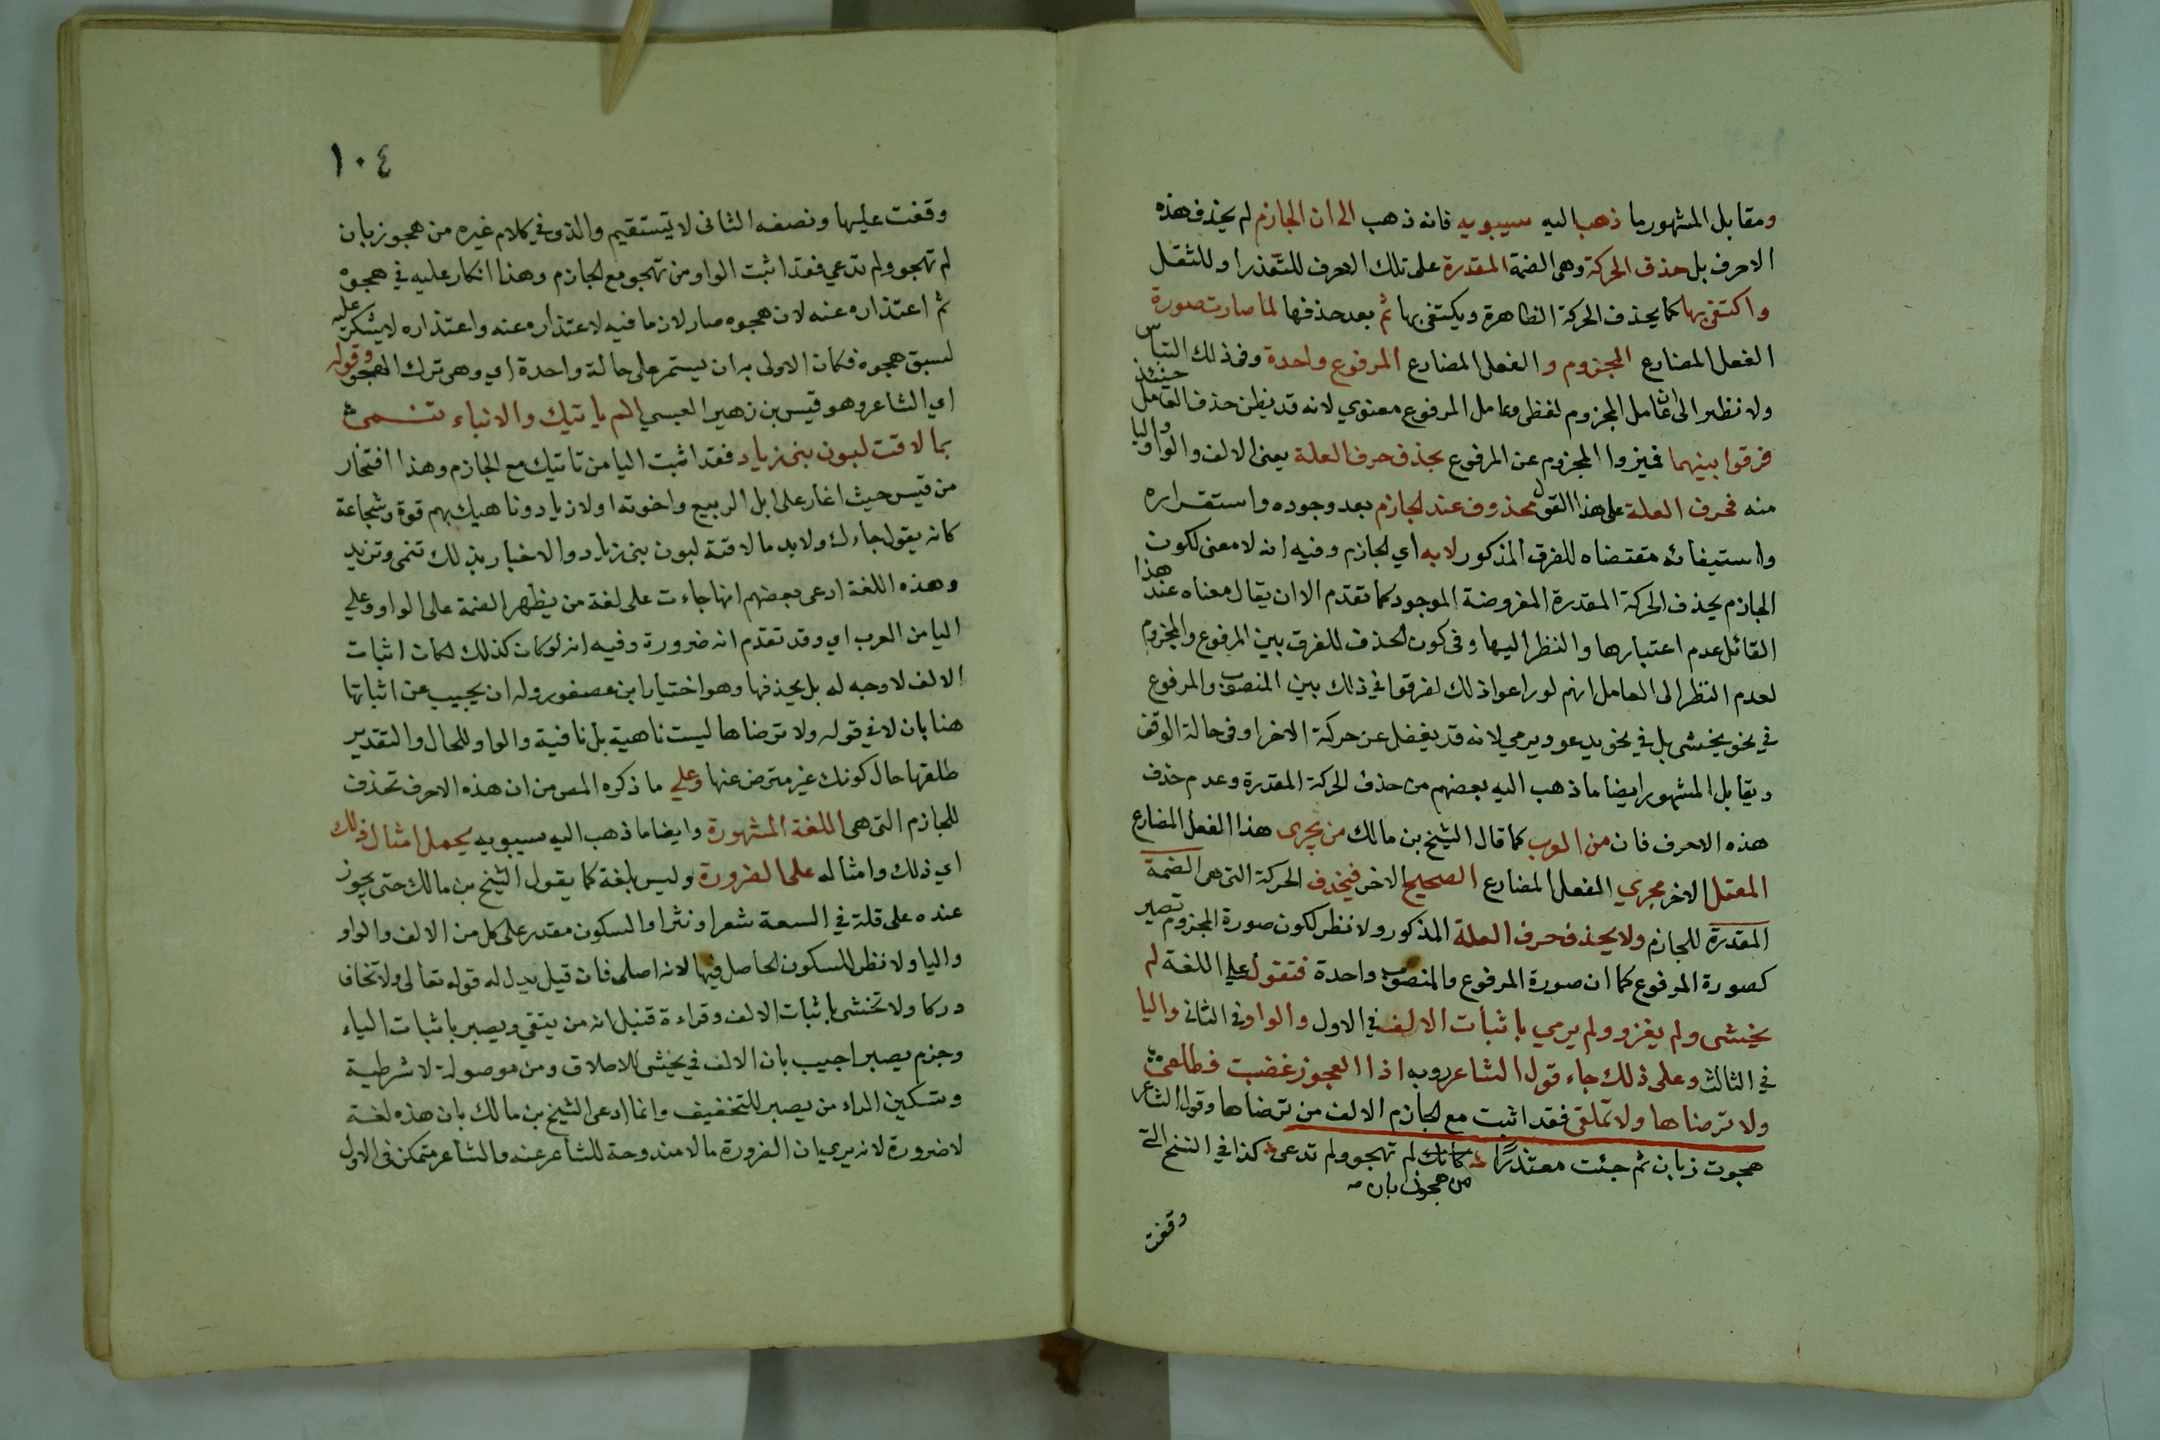 ومقابل المشهور ما ذهب اليه سيبويه فانه ذهب الى ان الجازم لم يحذف هذه
الاحرف بل حذف الحركة وهى الضمة المقدرة على تلك الاحرف للتعذر او للثقل
واكتفى بها كما يحذف الحركة الظاهرة ويكتفى بها ثم بعد حذفها لما صارت صورة
الفعل المضارع المجزوم والفعل المضارع المرفوع واحدة وفى ذلك التباس
ولا نظر الى ان عامل المجزوم لفظى وعامل المرفوع معنوي لانه قد يظن حذف العامل حينئذ
فرقوا بينهما فميزوا المجزوم عن المرفوع بحذف حرف العلة يعنى الالف والواو واليا
منه فحرف العلة على هذا القول محذوف عند الجازم بعد وجوده واستقراره
واستيفائه مقتضاه للفرق المذكور لا به اي الجازم وفيه انه لا معنى لكون
الجازم يحذف الحركة المقدرة المفروضة الموجود كما تقدم الا ان يقال معناه عند هذا
القائل عدم اعتبارها والنظر اليها وفى كون الحذف للفرق بين المرفوع والمجزوم
لعدم النظر الى العامل انهم لو راعوا ذلك لفرقوا في ذلك بين المنصوب والمرفوع
في نحو يخشى بل في نحو يدعو ويرمي لانه قد يغفل عن حركة الاخر او فى حالة الوقف
ويقابل المشهور ايضا ما ذهب اليه بعضهم من حذف الحركة المقدرة وعدم حذف
هذه الاحرف فان من العرب كما قال الشيخ بن مالك من يجرى هذا الفعل المضارع
المعتل الاخر مجري الفعل المضارع الصحيح الاخر فيحذف الحركة التى هى الضمة
المقدرة للجازم ولا يحذف حرف العلة المذكور ولا نظر لكون صورة المجزوم تصير
كصورة المرفوع كما ان صورة المرفوع والمنصوب واحدة فتقول على اللغة لم
يخشى ولم يغزو ولم يرمي باثبات الالف في الاول والواو فى الثانى واليا
في الثالث وعلى ذلك جاء قول الشاعر روبه اذا العجوز غضبت فطلق
ولا ترضاها ولا تملقى فقد اثبت مع الجازم الالف من ترضاها وقول الشاعر
هجوت زبان ثم جئت معتذرا كانك لم تهجو ولم تدعى كذا في النسخ التي
من هجو زبان صه
وقفت
١٠٤
وقفت عليها ونصفه الثانى لا يستقيم والذى في كلام غيره من هجو زبان
لم تهجو ولم تدعي فقد اثبت الواو من تهجو مع الجازم وهذا انكار عليه في هجوه
ثم اعتذاره عنه لان هجوه صار لان ما فيه لاعتذاره عنه واعتذاره لا يشكر عليه
لسبق هجوه فكان الاولى به ان يستمر على حالة واحدة اي وهى ترك الهجو وقوله
اي الشاعر وهو قيس بن زهير العبسي الم ياتيك والانباء تنمى
بما لاقت لبون بنى زياد فقد اثبت اليا من تاتيك مع الجازم وهذا افتخار
من قيس حيث اغار على ابل الربيع واخوته اولاد زياد وناهيك بهم قوة وشجاعة
كانه يقول جاءك ولا بد ما لاقته لبون بنى زياد والاخبار بذلك تنمى وتزيد
وهذه اللغة ادعى بعضهم انها جاءت على لغة من يظهر الضمة على الواو وعلي
اليا من العرب اي وقد تقدم انه ضرورة وفيه انه لو كان كذلك لكان اثبات
الالف لا وجه له بل يحذفها وهو اختيار ابن عصفور وله ان يجيب عن اثباتها
هنا بان لا في قوله ولا ترضاها ليست ناهية بل نافية والواو للحال والتقدير
طلقها حال كونك غير مترض عنها وعلي ما ذكره المص من ان هذه الاحرف تحذف
للجازم التى هى اللغة المشهورة وايضا ما ذهب اليه سيبويه يحمل امثال ذلك
اي ذلك وامثاله على الضرورة وليس بلغة كما يقول الشيخ بن مالك حتى يجوز
عنده على قلة في السعة شعرا ونثرا والسكون مقدر على كل من الالف والواو
واليا ولا نظر للسكون الحاصل فيها لانه اصلى فان قيل يدل له قوله تعالى ولا تخاف
دركا ولا تخشى باثبات الالف وقراءة قنبل انه من يتقي ويصبر باثبات الياء
وجزم يصبر اجيب بان الالف في يخشى للاطلاق ومن موصولة لا شرطية
وتسكين الراء من يصبر للتخفيف وانما ادعى الشيخ بن مالك بان هذه لغة
لا ضرورة لانه يري ان الضرورة ما لا مندوحة للشاعر عنه والشاعر متمكن فى الاول